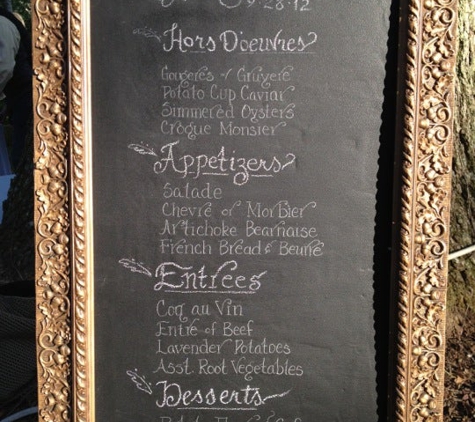 28.12
Hors D'oeuvres
Gougeres of Gruyere
Potato Cup Caviar
Simmered Oysters
Croque Monsier
Appetizers
Salade
Chevre or Morbier
Artichoke Bearnaise
French Bread & Beurre
Entrees
Coq au Vin
Entre of Beef
Lavender Potatoes
Asst. Root Vegetables
Desserts